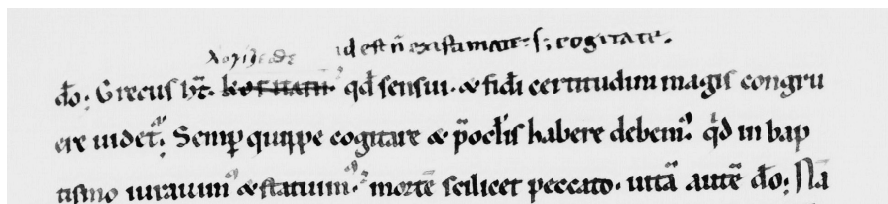 λογιζεσθε id est ñ existimate· s; cogitate·
do͞. Grecus ht͞. qd͞ sensui· & fidi͞ certitudini magis congru
ere uidet᷑. Semp̱ quippe cogitare & p͞ oclis͞ habere debem᷒. qd͞ in bap
tismo iurauim᷒ & statuim᷒. mortē scilicet peccato· uitā autē do͞. Nā